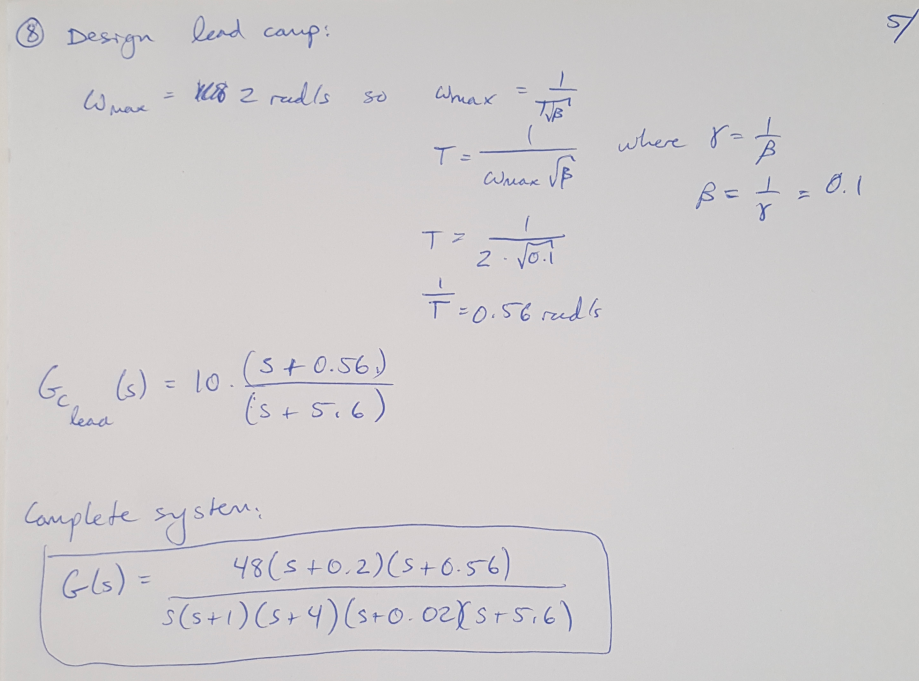 ⑧ Design lead comp: 5/
ωmax = 2 rad/s so ωmax = 1/(T√β)
T = 1/(ωmax √β) where γ = 1/β
β = 1/γ = 0.1
T = 1/(2 · √0.1)
1/T = 0.56 rad/s
Gc lead (s) = 10 · (s + 0.56) / (s + 5.6)
Complete system:
G(s) = 48(s + 0.2)(s + 0.56) / s(s+1)(s+4)(s+0.02)(s+5.6)